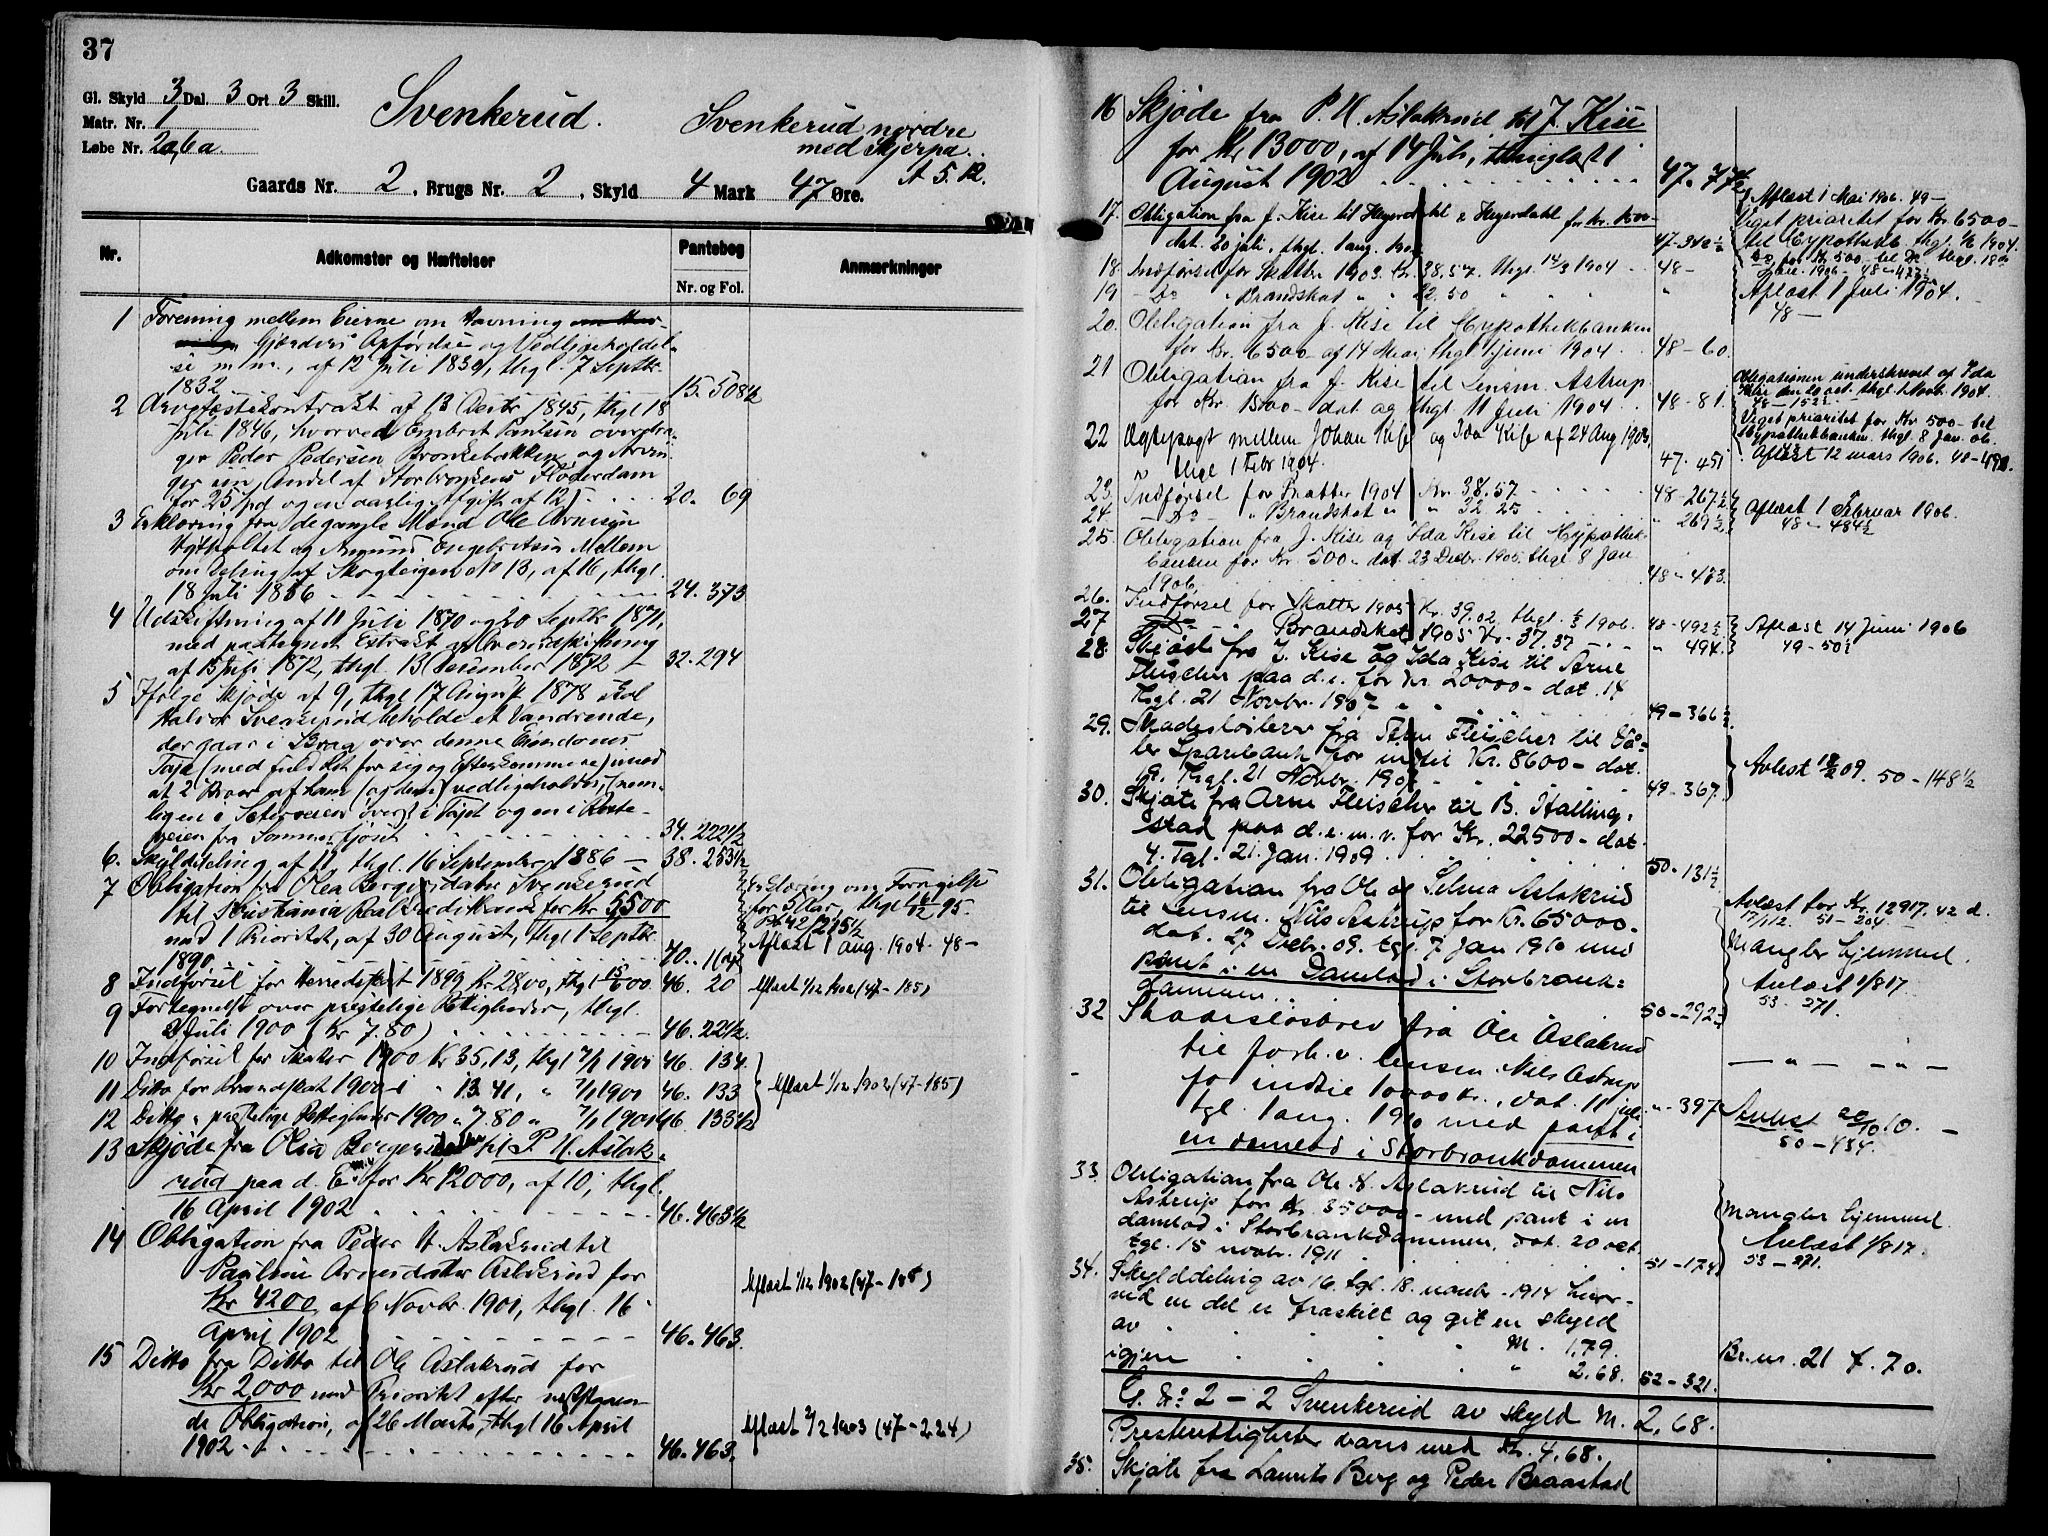 37
Gl. Skyld 3 Dal. 3 Ort 3 Skill.
Matr. Nr. 1
Løbe Nr. 2a, 6a.
Svenkerud.
Svenkerud nordre
med Skjerpa.
A 5. 12.
Gaards Nr. 2, Brugs Nr. 2, Skyld 4 Mark 47 Øre.
Nr. Adkomster og Hæftelser Pantebog Anmærkninger
Nr. og Fol.
1 Forening mellem Eierne om Havning
Gjærders Opførelse og Vedligeholdel-
se m.m., af 12 Juli 1830, thgl. 7 Septbr.
1832 15. 508½
2 Arvefæstekontrakt af 13 1845, thgl 18
Juli 1846, hvorved Embret Paulsen overdra-
ger Peder Pedersen Bronkebakken og Arvin-
ger sin Andel af Storbronkens Fløderdam
for 25 Spd og en aarlig Afgift af 12 20. 69
3 Erklæring fra de gamle Mænd Ole Arnesen
og Amund Engebretsen Mellem
om Deling af Skogteigen No 13, af 16, thgl.
18 Juli 1856 24. 373
4 Udskiftning af 11 Juli 1870 og 20 Septbr 1871,
med paategnet Extrakt af Overudskiftning
af 15 Juli 1872, thgl. 13 December 1872 32. 294
5 Ifølge Skjøde af 9, thgl 17 August 1878 skal
Halvor Svenkerud beholde et Vandrende,
der gaar i Braa over denne Eiendoms
Jorde (med fuld Ret for sig og Efterkommere) mod
at 2 Broer af ham (og dem) vedligeholdes, (nem-
lig en i Sæterveien øverst i Jordet og en i
veien fra Sommerfjøset 34. 222½
6. Skylddeling af 11, thgl. 16 September 1886 — 38. 253½
7 Obligation fra Olea Bergersdatter Svenkerud
til Kristiania Realkreditbank for Kr 5500
med 1 Prioritet, af 30 August, thgl 1 Septbr.
1890 40. 164
Erklæring om Fornyelse
for 5 Aar, thgl 95.
Pb 42/215½
Aflæst 1 aug. 1904. 48—
8 Indførsel for Herredsskat 1899 Kr 28,00, thgl 15/ 1900. 46. 20 Aflæst 1/12 1902 (47—185)
9 Fortegnelse over præstelige Rettigheder, thgl.
2 Juli 1900 (Kr 7.80) 46. 221½
10 Indførsel for Skatter 1900 Kr 35,13, thgl 7/1 1901 46. 134.
11 Ditto for Brandskat 1900 " 13.41, " 7/1 1901 46. 133 Aflæst 1/12 1902 (47—185)
12 Ditto " præstelige Rettigheder 1900 " 7.80 " 7/1 1901 46. 133½
13 Skjøde fra Olia Bergersdatter til P. H. Aslak-
rud paa d. E. for Kr 12000, af 10, thgl.
16 April 1902 46. 463½
14 Obligation fra Peder H. Aslakrud til
Pauline Arnesdatter Aslakrud for
Kr 4200, af 6 Novbr. 1901, thgl. 16
April 1902 46. 463. Aflæst 1/12 1902 (47—185)
15 Ditto fra Ditto til Ole Aslakrud for
Kr 2000 med Prioritet efter næstforegaaen-
de Obligation, af 26 Marts, thgl 16 April
1902 46. 463. Aflæst 2/2 1903 (47—224)
16 Skjøde fra P. H. Aslakrud til J. Kise
for Kr 13000, af 14 Juli, thinglæst 1
August 1902 47. 77½
17. Obligation fra J. Kise til Heyerdahl & Heyerdahl for Kr. 1500—
dat. 30 juli, thgl. 1 aug. 1902 47-
Aflæst 1 Mai 1906. 49—
Viget prioritet for Kr. 6500—
til Hypothekb. thgl. 1/6 1904.
do for Kr 500— til Do thgl. 18
Jan. 1906— 48—473½
18. Indførsel for Skatter 1903. Kr. 38.57. thgl. 14/3 1904 48—
19 — Do " Brandskat " " 22.50 " " " "
Aflæst 1 Juli 1904.
48—
20. Obligation fra J. Kise til Hypothekbanken
for Kr. 6500— af 14 Mai, thgl. 1 juni 1904 48—60.
21 Obligation fra J. Kise til Lensm. Astrup
for Kr. 1500— dat og thgl. 11 Juli 1904 48—81.
Obligationen underskrevet af Ida
Kise den 20 oct. thgl. 1 Novb. 1904.
48—152½
Viget prioritet for Kr 500— til
Hypothekbanken. thgl. 8 Jan. 06.
Aflæst 12 mars 1906. 48—491.
22 Ægtepagt mellem Johan Kise og Ida Kise af 24 Aug 1903,
thgl 1 Febr 1904. 47. 451
23. Indførsel for Skatter 1904 Kr. 38.57 48—267½
24. — Do — " Brandskat " " 32.25 " 269½
Aflæst 1 Februar 1906.
48—484½
25. Obligation fra J. Kise og Ida Kise til Hypothek-
banken for Kr 500— dat. 23 Decbr. 1905, thgl. 8 Jan
1906 48—473.
26. Indførsel for Skatter 1905 Kr. 39.02, thgl. 1906. 48—492½
27 — Do — " Brandskat 1905 Kr. 37.37 " 494.
Aflæst 14 Juni 1906
49—50½
28 Skjøte fra J. Kise og Ida Kise til Arne
Fleischer paa d. e. for Kr. 20000— dat. 14
thgl. 21 Novbr. 1907 49—366½
29. Skadesløsbrev fra Arne Fleischer til Vaa-
ler Sparebank for indtil Kr. 8600— dat.
9. thgl. 21 Novbr. 1907 49—367.
Avlæst 18/2 09. 50—148½
30. Skjøte fra Arne Fleischer til B. Halling-
stad paa d. e. m. v. for Kr. 22500— dat.
4. Tgl. 21. Jan. 1909. 50—131½
31. Obligation fra Ole og Selma Aslakrud
til Lensm. Nils Astrup for Kr. 65000—
dat. 27 Decbr. 09. tgl. 7 Jan 1910 med
pant i en Damlod i Storbronk-
dammen 50—292½
Avlæst for Kr. 12917.42 d.
17/1 12. 51—204.
Mangler hjemmel.
Avlæst 1/8 17.
53—271.
32 Skadesløsbrev fra Ole Aslakrud
til forh.v. lensm. Nils Astrup
for indtil 10000 kr., dat. 11 juli
tgl. 1 aug. 1910 med pant i
en damlod i Storbronkdammen
"—397
— " — — " —
Avlæst 20/10 10. —
50—434.
33. Obligation fra Ole H. Aslakrud til Nils
Astrup for Kr. 35000— med pant i en
damlod i Storbronkdammen, dat. 20 oct.
tgl. 15 novbr. 1911 51—174
Mangler hjemmel.
Avlæst 1/8 17.
53—271.
34. Skylddeling av 16, tgl. 18. novbr. 1914 hvor-
ved en del er fraskilt og git en skyld
av M. 1,79.
igjen " 2.68. 52—321. Br.nr. 21 f. 70.
G. No 2 — 2 Svenkerud av skyld M. 2,68.
Prestrettigheter svares med Kr. 4.68.
35. Skjøte fra Laurits Berg og Peder Braastad